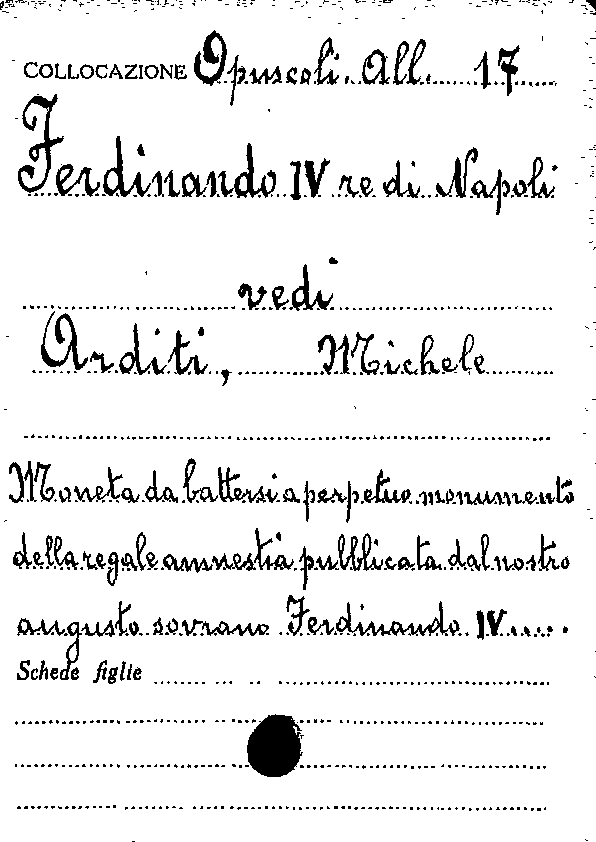 COLLOCAZIONE Opuscoli. All. 17
Ferdinando IV re di Napoli
vedi
Arditi, Michele
Moneta da battersi a perpetuo monumento
della regale amnestia pubblicata dal nostro
augusto sovrano Ferdinando IV.....
Schede figlie